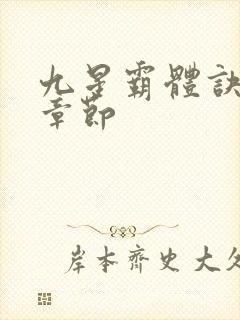 九星霸體訣
章節
岸本齊史大久